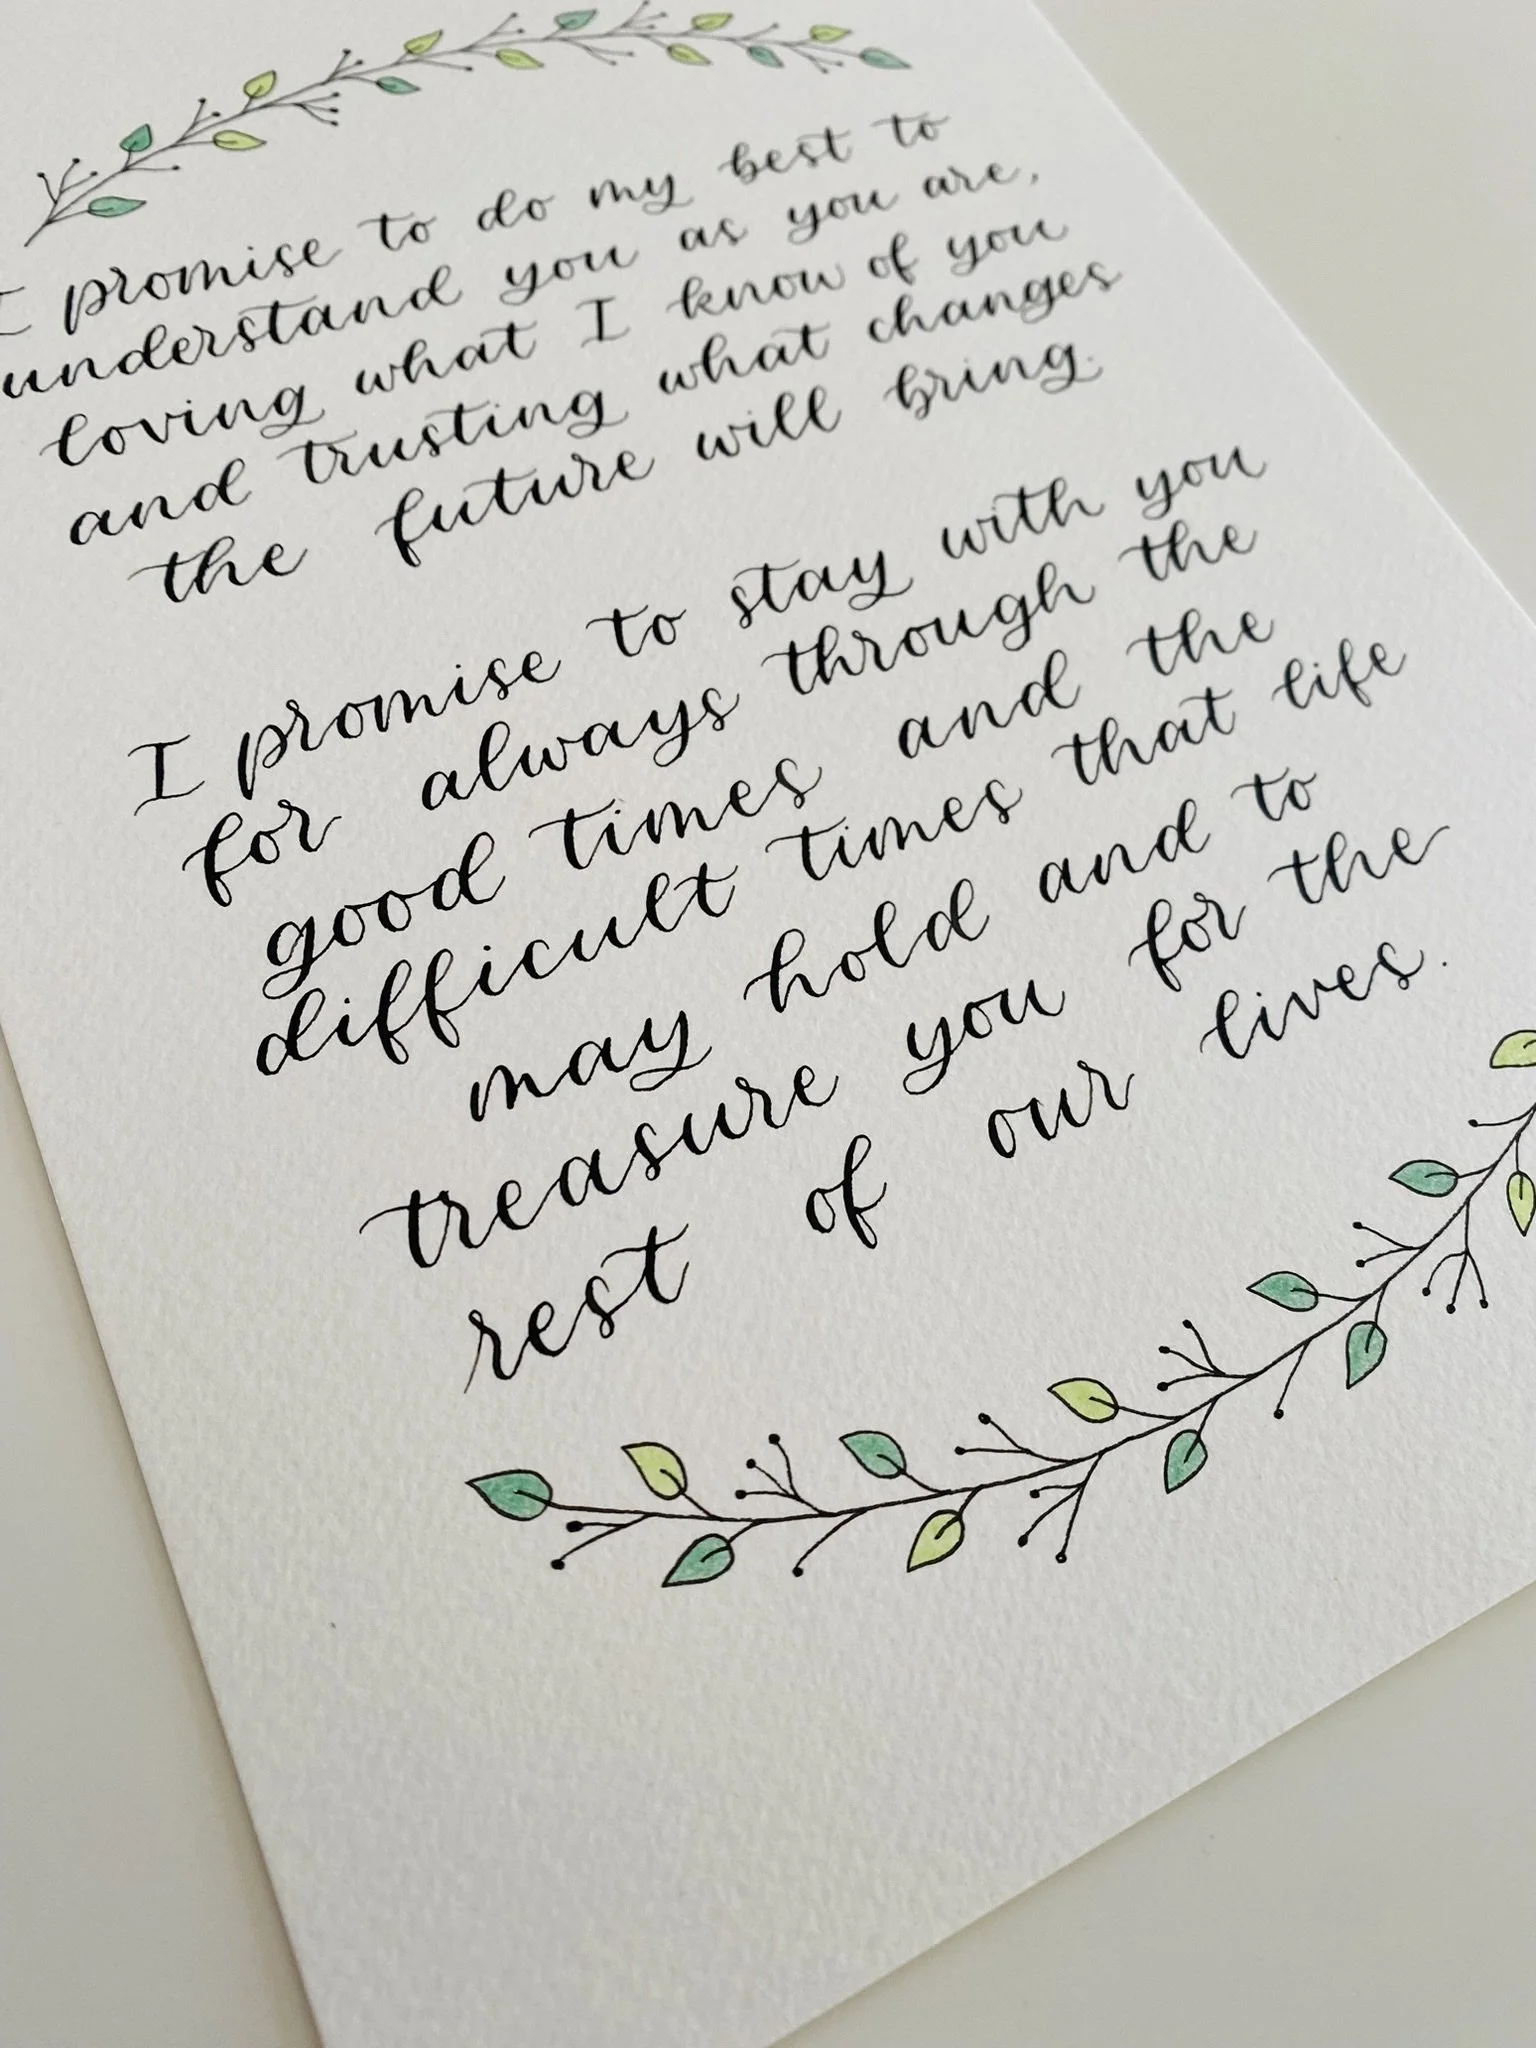 I promise to do my best to
understand you as you are,
loving what I know of you
and trusting what changes
the future will bring.
I promise to stay with you
for always through the
good times and the
difficult times that life
may hold and to
treasure you for the
rest of our lives.